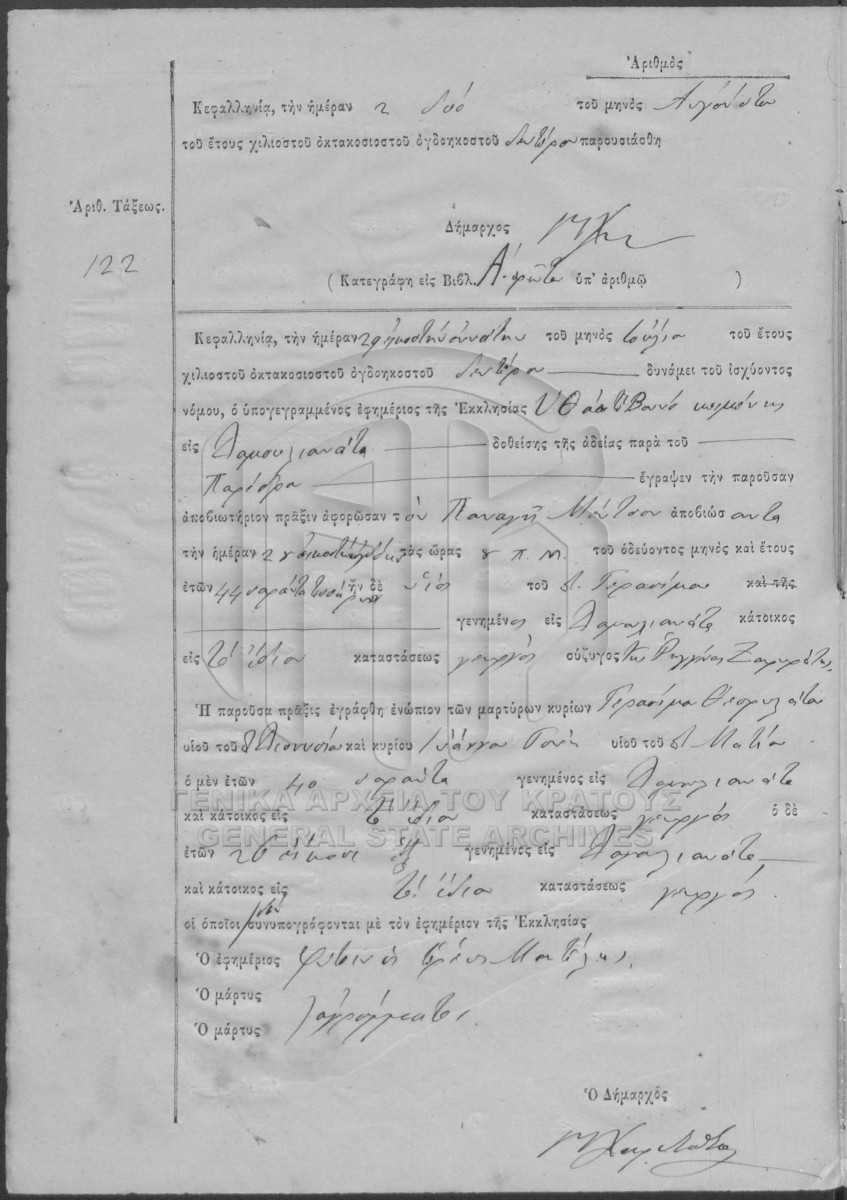 Ἀριθμὸς
Κεφαλληνίᾳ, τὴν ἡμέραν 2 δύο τοῦ μηνὸς Αὐγούστου
τοῦ ἔτους χιλιοστοῦ ὀκτακοσιοστοῦ ὀγδοηκοστοῦ δευτέρου παρουσιάσθη
Ἀριθ. Τάξεως.
122
Δήμαρχος
( Κατεγράφη εἰς Βιβλ. Α' πρῶτο ὑπ' ἀριθμῷ )
Κεφαλληνίᾳ, τὴν ἡμέραν 29 εἰκοστὴν ἐννάτην τοῦ μηνὸς Ἰουλίου τοῦ ἔτους
χιλιοστοῦ ὀκτακοσιοστοῦ ὀγδοηκοστοῦ δευτέρου δυνάμει τοῦ ἰσχύοντος
νόμου, ὁ ὑπογεγραμμένος ἐφημέριος τῆς Ἐκκλησίας
εἰς Δαμουλιανάτα δοθείσης τῆς ἀδείας παρὰ τοῦ
Παρέδρου ἔγραψεν τὴν παροῦσαν
ἀποβιωτήριον πρᾶξιν ἀφορῶσαν τὸν Παναγῆ ἀποβιώσαντα
τὴν ἡμέραν τὰς ὥρας π. μ. τοῦ ὁδεύοντος μηνὸς καὶ ἔτους
ἐτῶν 44 σαράντα τεσσάρων ἦν δὲ υἱὸς τοῦ Γερασίμου καὶ τῆς
γενημένος εἰς Δαμουλιανάτα κάτοικος
εἰς τὰ ἴδια καταστάσεως γεωργὸς σύζυγος τῆς
Ἡ παροῦσα πρᾶξις ἐγράφθη ἐνώπιον τῶν μαρτύρων κυρίων Γερασίμου Θεοφιλάτου
υἱοῦ τοῦ Διονυσίου καὶ κυρίου Ἰωάννου υἱοῦ τοῦ Ματίου
ὁ μὲν ἐτῶν 40 σαράντα γενημένος εἰς Δαμουλιανάτα
καὶ κάτοικος εἰς τὰ ἴδια καταστάσεως γεωργὸς ὁ δὲ
ΓΕΝΙΚΑ ΑΡΧΕΙΑ ΤΟΥ ΚΡΑΤΟΥΣ
GENERAL STATE ARCHIVES
ἐτῶν 26 εἴκοσι ἓξ γενημένος εἰς Δαμουλιανάτα
καὶ κάτοικος εἰς τὰ ἴδια καταστάσεως γεωργὸς
οἱ ὁποῖοι συνυπογράφονται μὲ τὸν ἐφημέριον τῆς Ἐκκλησίας
Ὁ ἐφημέριος
Ὁ μάρτυς
Ὁ μάρτυς ἀγράμματοι
Ὁ Δήμαρχὸς